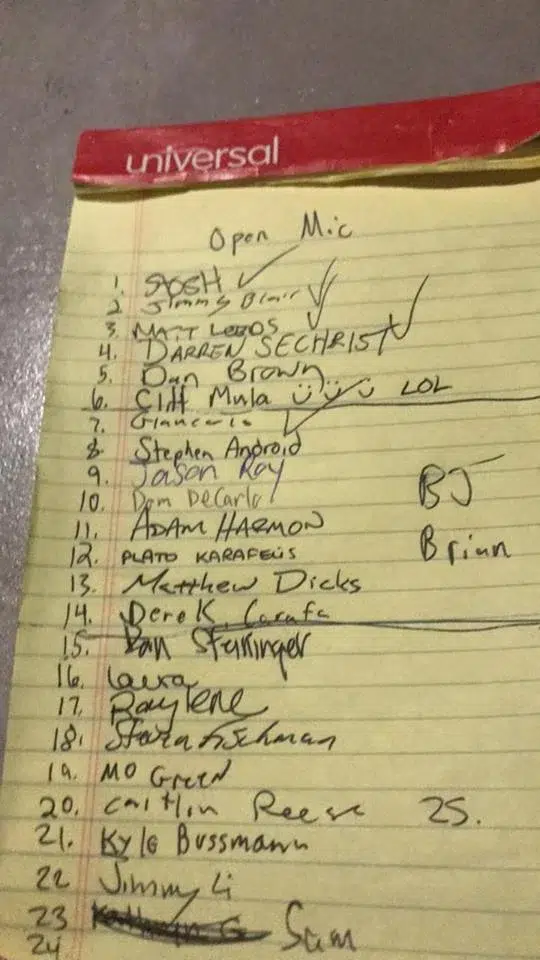 universal
Open Mic
1. STOSH
2 Jimmy Blair
3. MATT LEBOS
4. DARREN SECHRIST
5. Dan Brown
6. Cliff Mula LOL
7. Giancarlo
8. Stephen Android
9. Jason Roy
10. Dom DeCarlo
BJ
11. ADAM HARMON
Brian
12. PLATO KARAFELIS
13. Matthew Dicks
14. Derek
15. Dan
16. Laura
17. Raylene
18. Fischman
19. MO GREEN
20. Caitlin Reese 25.
21. Kyle Bussmann
22 Jimmy Li
23 Sam
24